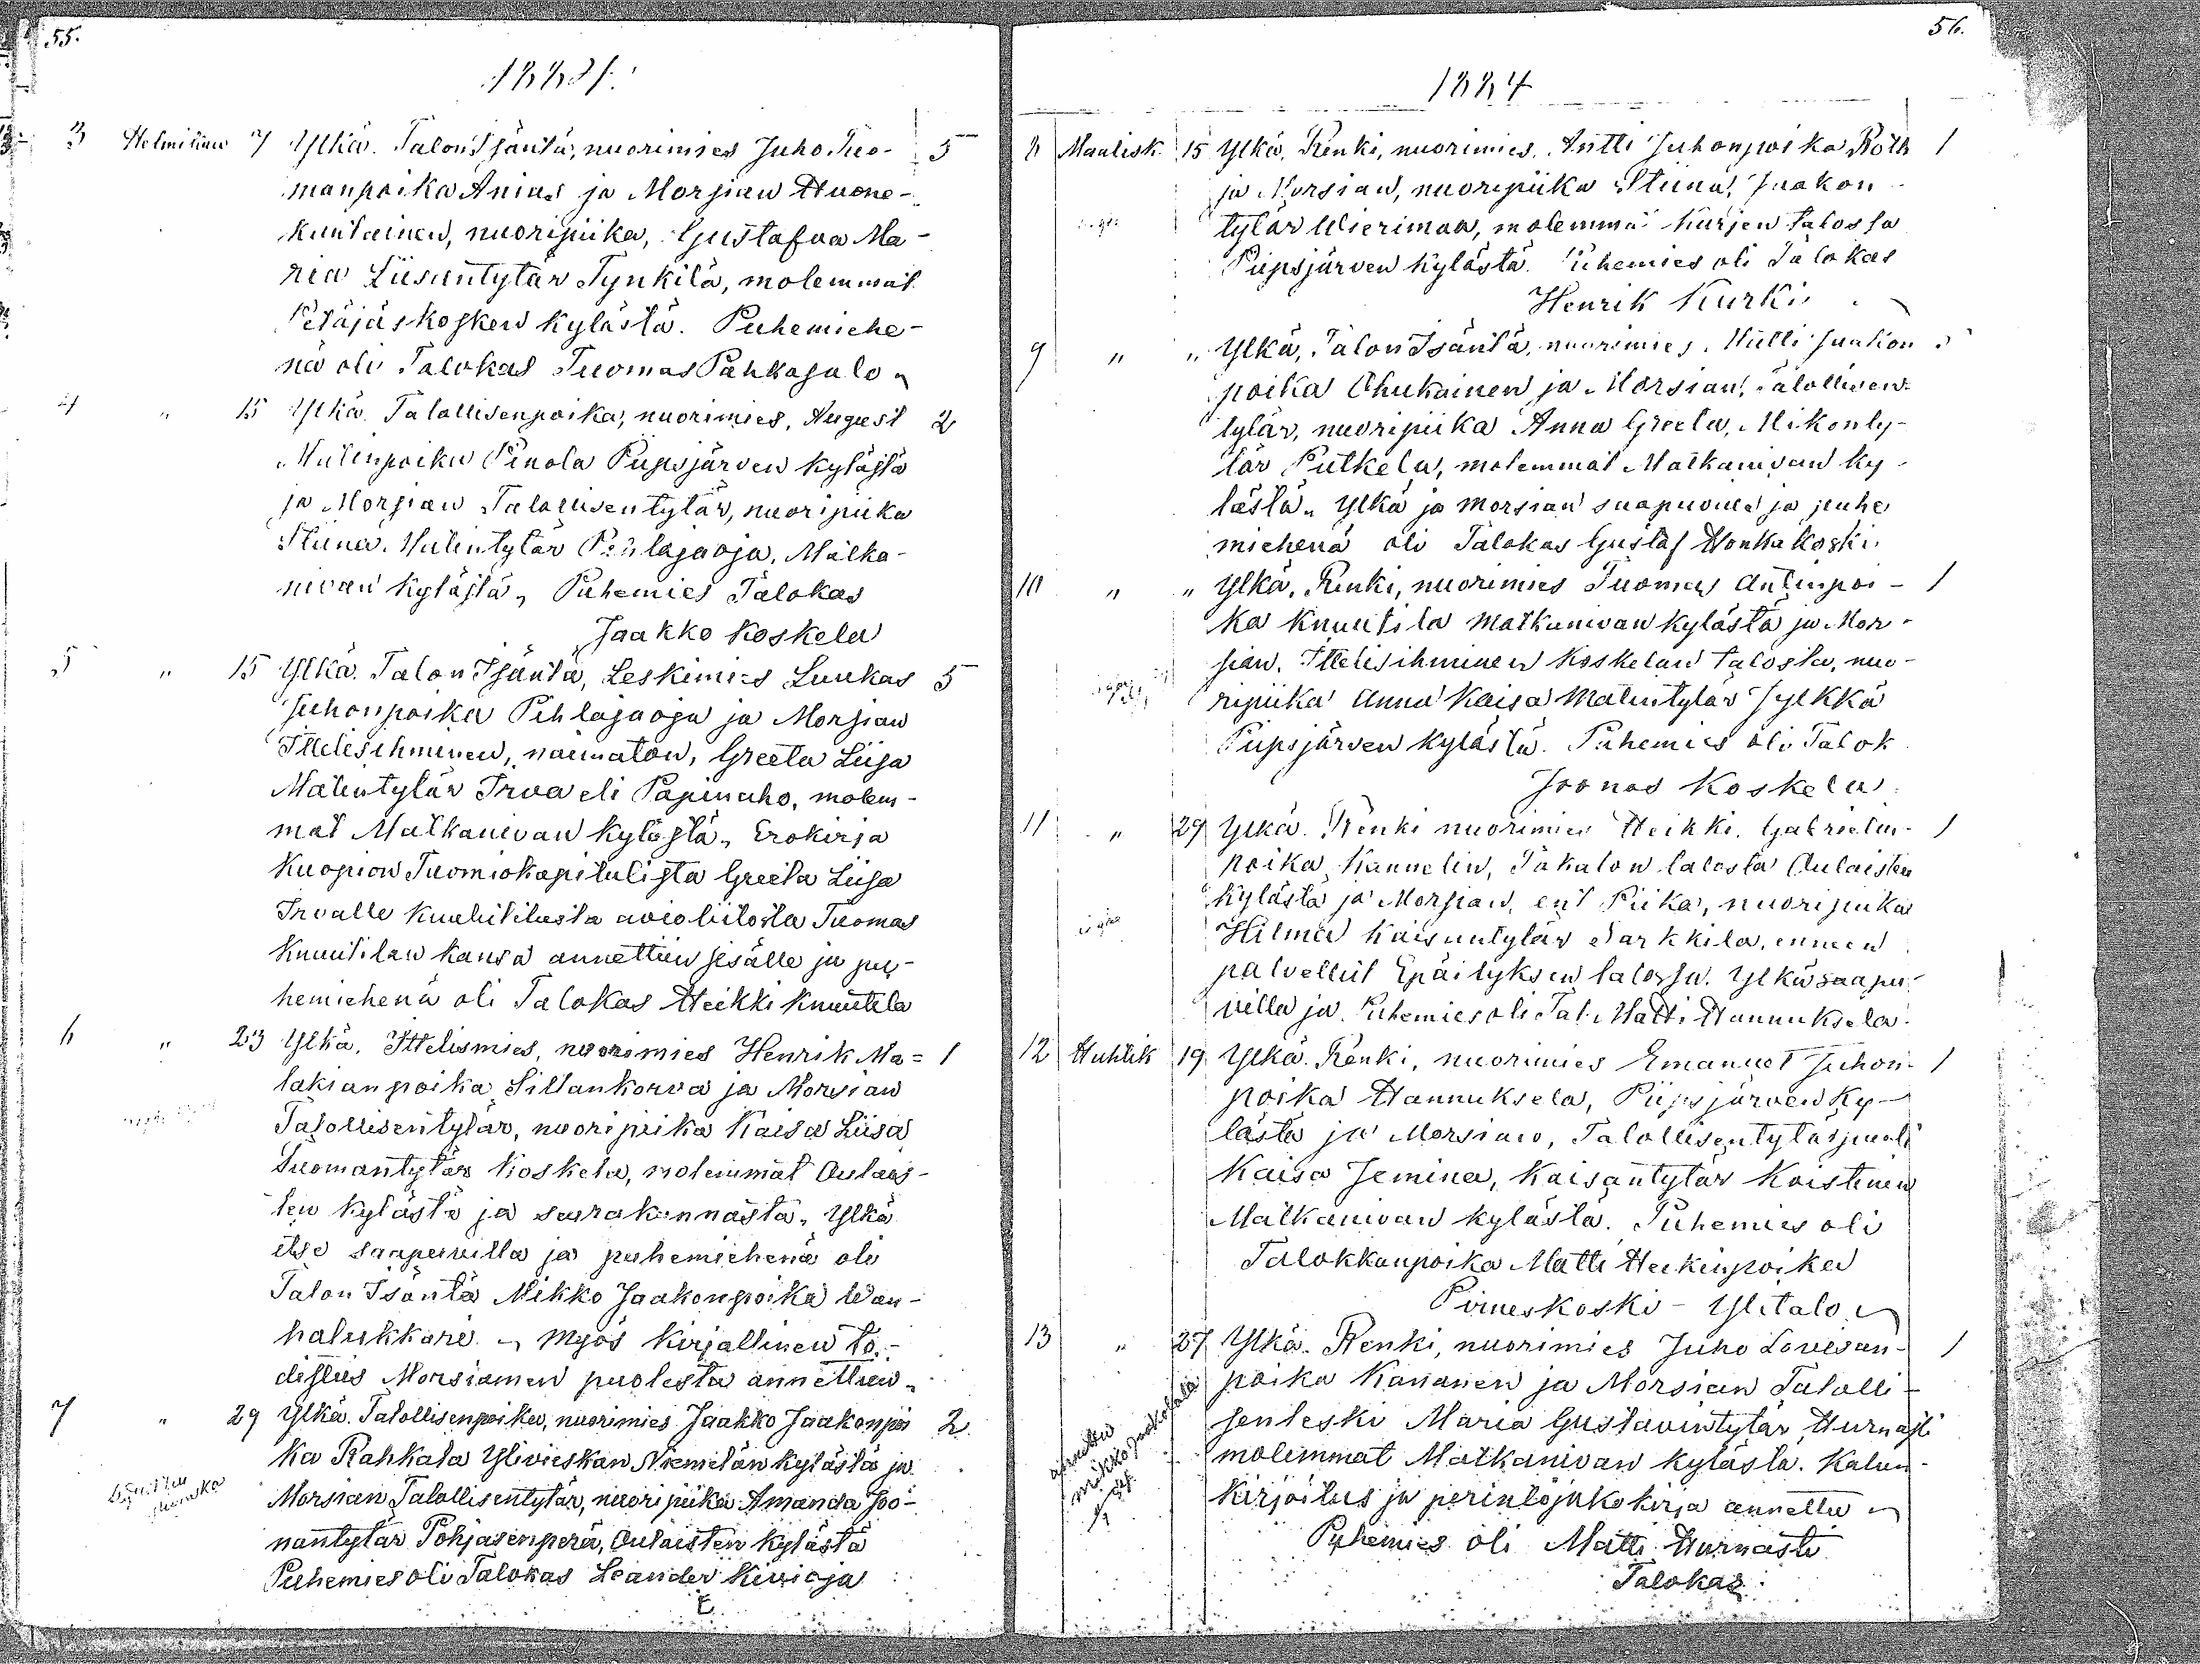 55.
1884.
3 Helmikuu 7 Ylkä. Talon Isäntä, nuorimies Juho Tuo- 5
manpoika Anias ja Morsian Huone-
kuntainen, nuoripiika, Gustafva Ma-
ria Liisantytär Tynkilä, molemmat
Petäjäskosken kylästä. Puhemiehe-
nä oli Talokas Tuomas Pahkasalo
4 " 15 Ylkä. Talollisenpoika, nuorimies, August 2
Matinpoika Pinola Piipsjärven kylästä
ja Morsian Talollisentytär, nuoripiika
Stiina Matintytär Pihlajaoja, Matka-
nivan kylästä, Puhemies Talokas
Jaakko Koskela
5 " 15 Ylkä. Talon Isäntä, Leskimies Luukas 5
Juhonpoika Pihlajaoja ja Morsian
Ittelisihminen, naimaton, Greeta Liisa
Matintytär Irva eli Papinaho, molem-
mat Matkanivan kylästä, Erokirja
Kuopion Tuomiokapitulista Greeta Liisa
Irvalle kuulutilusta avioliitosta Tuomas
Knuutilan kansa annettiin sisälle ja pu-
hemiehenä oli Talokas Heikki Knuutila
6 " 23 Ylkä. Ittelismies, nuorimies Henrik Ma= 1
lakianpoika Sillankorva ja Morsian
Talollisentytär, nuoripiika Kaisa Liisa
Tuomantytär Koskela, molemmat Oulais-
ten kylästä ja seurakunnasta, Ylkä
itse saapuvilla ja puhemiehenä oli
Talon Isäntä Mikko Jaakonpoika Wan-
halukkari. Myös kirjallinen to-
distus Morsiamen puolesta annettiin
7 " 29 Ylkä. Talollisenpoika, nuorimies Jaakko Jaakonpoi 2
ka Rahkala Ylivieskan Niemelän kylästä ja
Morsian Talollisentytär, nuoripiika Amanda Joo-
nantytär Pohjasenperä, Oulaisten kylästä
Puhemies oli Talokas Leander Kivioja
56.
1884
8 Maalisk. 15 Ylkä, Renki, nuorimies, Antti Juhonpoika Roth 1
ja Morsian, nuoripiika Stiina Jaakon
tytär Wierimaa, molemmat Kurjen talossa
Piipsjärven kylästä. Puhemies oli Talokas
Henrik Kurki
9 " " Ylkä, Talon Isäntä, nuorimies, Matti Jaakon
poika Ohukainen ja Morsian, Talollisen-
tytär, nuoripiika Anna Greeta, Mikonty-
tär Putkela, molemmat Matkanivan ky-
lästä, Ylkä ja morsian saapuvilla ja puhe
miehenä oli Talokas Gustaf Honkakoski
10 " " Ylkä, Renki, nuorimies Tuomas Antinpoi- 1
ka Knuutila Matkanivan kylästä ja Mor-
sian, Ittelisihminen Koskelan talosta, nuo-
ripiika Anna Kaisa Matintytär Jylkkä
Piipsjärven kylästä. Puhemies oli Talok
Joonas Koskela
11 " 29 Ylkä. Renki nuorimies Heikki, Gabrielin- 1
poika Kannelin, Takalon talosta Oulaisten
kylästä ja Morsian, ent Piika, nuoripiika
Hilma Kaisantytär Sarkkila, ennen
palvellut Epäilyksen talossa. Ylkä saapu-
villa ja Puhemies oli Tal. Matti Hannuksela.
12 Huhtik 19 Ylkä. Renki, nuorimies Emanuel Juhon- 1
poika Hannuksela, Piipsjärven ky-
lästä ja Morsian, Talollisentytärpuoli
Kaisa Jemina, Kaisantytär Koistinen
Matkanivan kylästä. Puhemies oli
Talokkanpoika Matti Heikinpoika
Piineskoski - Ylitalo
13 " 27 Ylkä. Renki, nuorimies Juho Lovisan- 1
poika Kananen ja Morsian Talolli-
senleski Maria Gustavintytär Hurnasti
molemmat Matkanivan kylästä. Kalun-
kirjoitus ja perintöjakokirja annettu
Puhemies oli Matti Hurnasti
Talokas